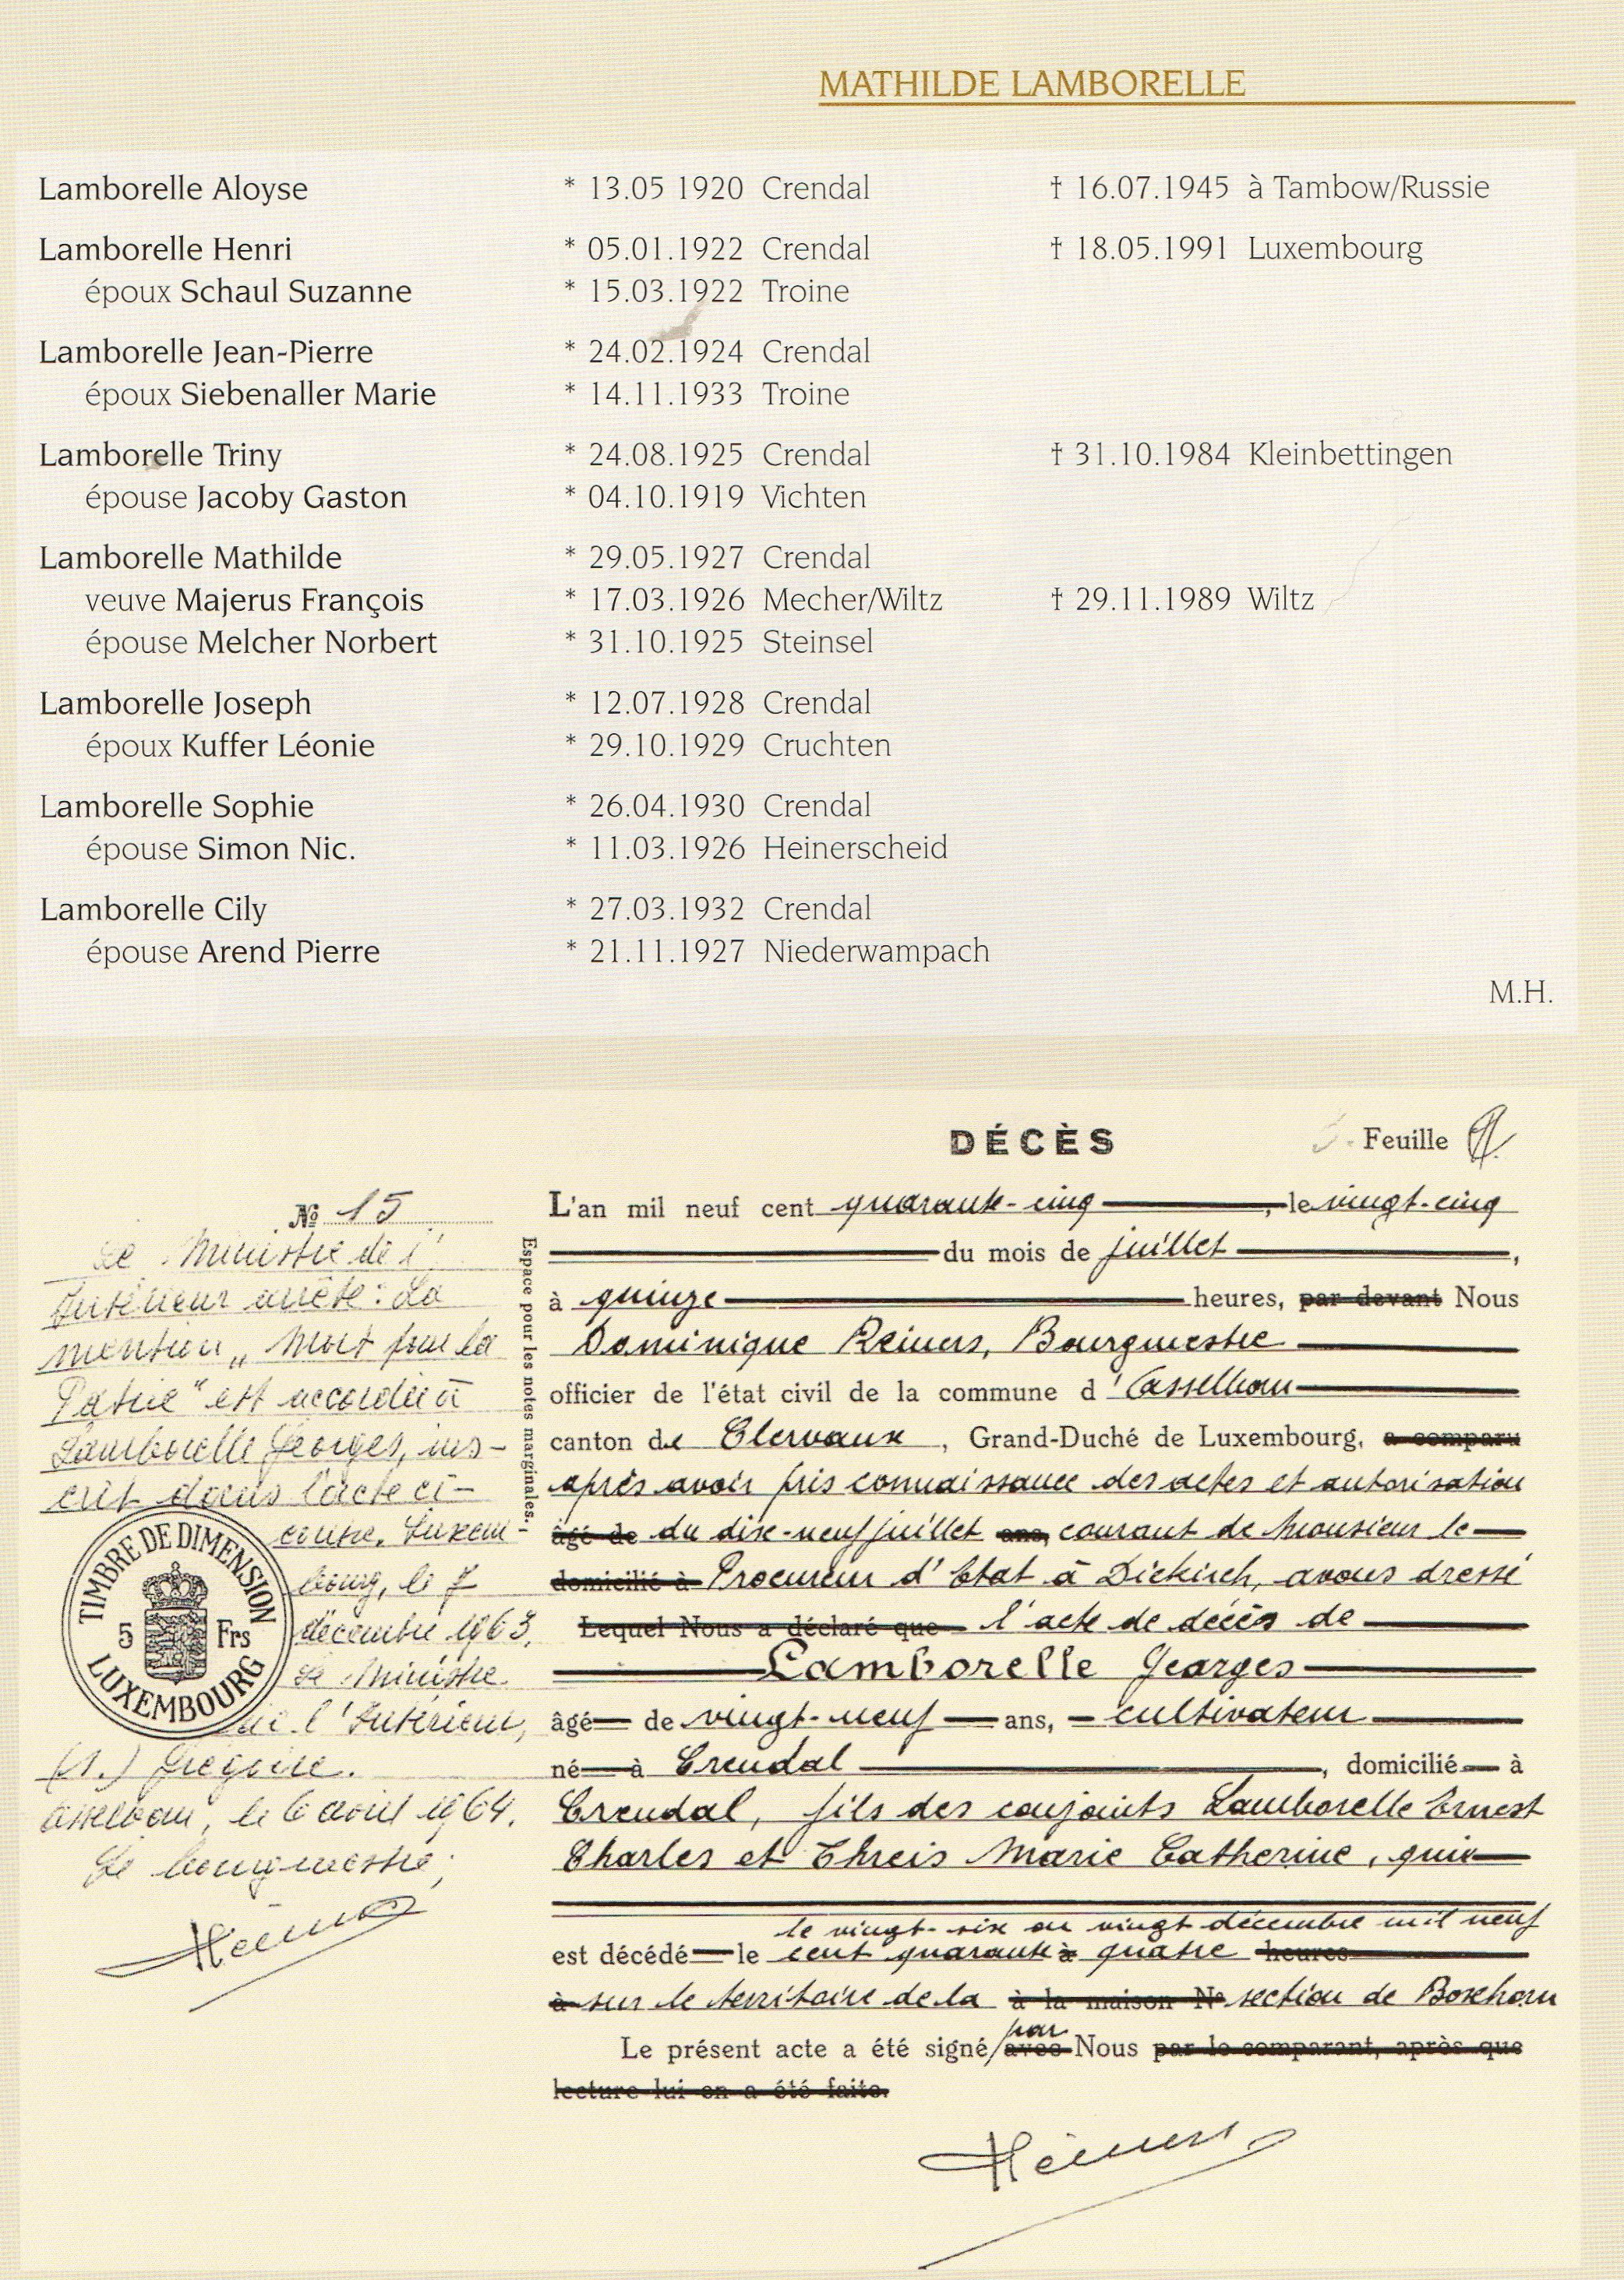 MATHILDE LAMBORELLE
Lamborelle Aloyse * 13.05 1920 Crendal † 16.07.1945 à Tambow/Russie
Lamborelle Henri * 05.01.1922 Crendal † 18.05.1991 Luxembourg
époux Schaul Suzanne * 15.03.1922 Troine
Lamborelle Jean-Pierre * 24.02.1924 Crendal
époux Siebenaller Marie * 14.11.1933 Troine
Lamborelle Triny * 24.08.1925 Crendal † 31.10.1984 Kleinbettingen
épouse Jacoby Gaston * 04.10.1919 Vichten
Lamborelle Mathilde * 29.05.1927 Crendal
veuve Majerus François * 17.03.1926 Mecher/Wiltz † 29.11.1989 Wiltz
épouse Melcher Norbert * 31.10.1925 Steinsel
Lamborelle Joseph * 12.07.1928 Crendal
époux Kuffer Léonie * 29.10.1929 Cruchten
Lamborelle Sophie * 26.04.1930 Crendal
épouse Simon Nic. * 11.03.1926 Heinerscheid
Lamborelle Cily * 27.03.1932 Crendal
épouse Arend Pierre * 21.11.1927 Niederwampach
M.H.
DÉCÈS
Feuille
№ 15
Le Ministre de l'
Intérieur arrête: La
mention „Mort pour la
Patrie" est accordée à
Lamborelle Georges, ins-
crit dans l'acte ci-
contre. Luxem-
bourg, le 7
décembre 1963.
Le Ministre
de l'Intérieur,
(s.) Grégoire.
Asselborn, le 6 avril 1964.
Le bourgmestre;
TIMBRE DE DIMENSION
5 Frs
LUXEMBOURG
Espace pour les notes marginales.
L'an mil neuf cent quarante-cinq, le vingt-cinq
du mois de juillet,
à quinze heures, par devant Nous
Dominique Reiners, Bourgmestre
officier de l'état civil de la commune d'Asselborn
canton de Clervaux, Grand-Duché de Luxembourg, a comparu
après avoir pris connaissance des actes et autorisation
âgé de du dix-neuf juillet ans, courant de Monsieur le
domicilié à Procureur d'Etat à Diekirch, avons dressé
Lequel Nous a déclaré que l'acte de décès de
Lamborelle Georges
âgé de vingt-neuf ans, cultivateur
né à Crendal, domicilié à
Crendal, fils des conjoints Lamborelle Ernest
Charles et Threis Marie Catherine, qui
le vingt-six ou vingt décembre mil neuf
est décédé le cent quarante à quatre heures
à sur le territoire de la à la maison Nº section de Boxhorn
par
Le présent acte a été signé avec Nous par le comparant, après que
lecture lui en a été faite.